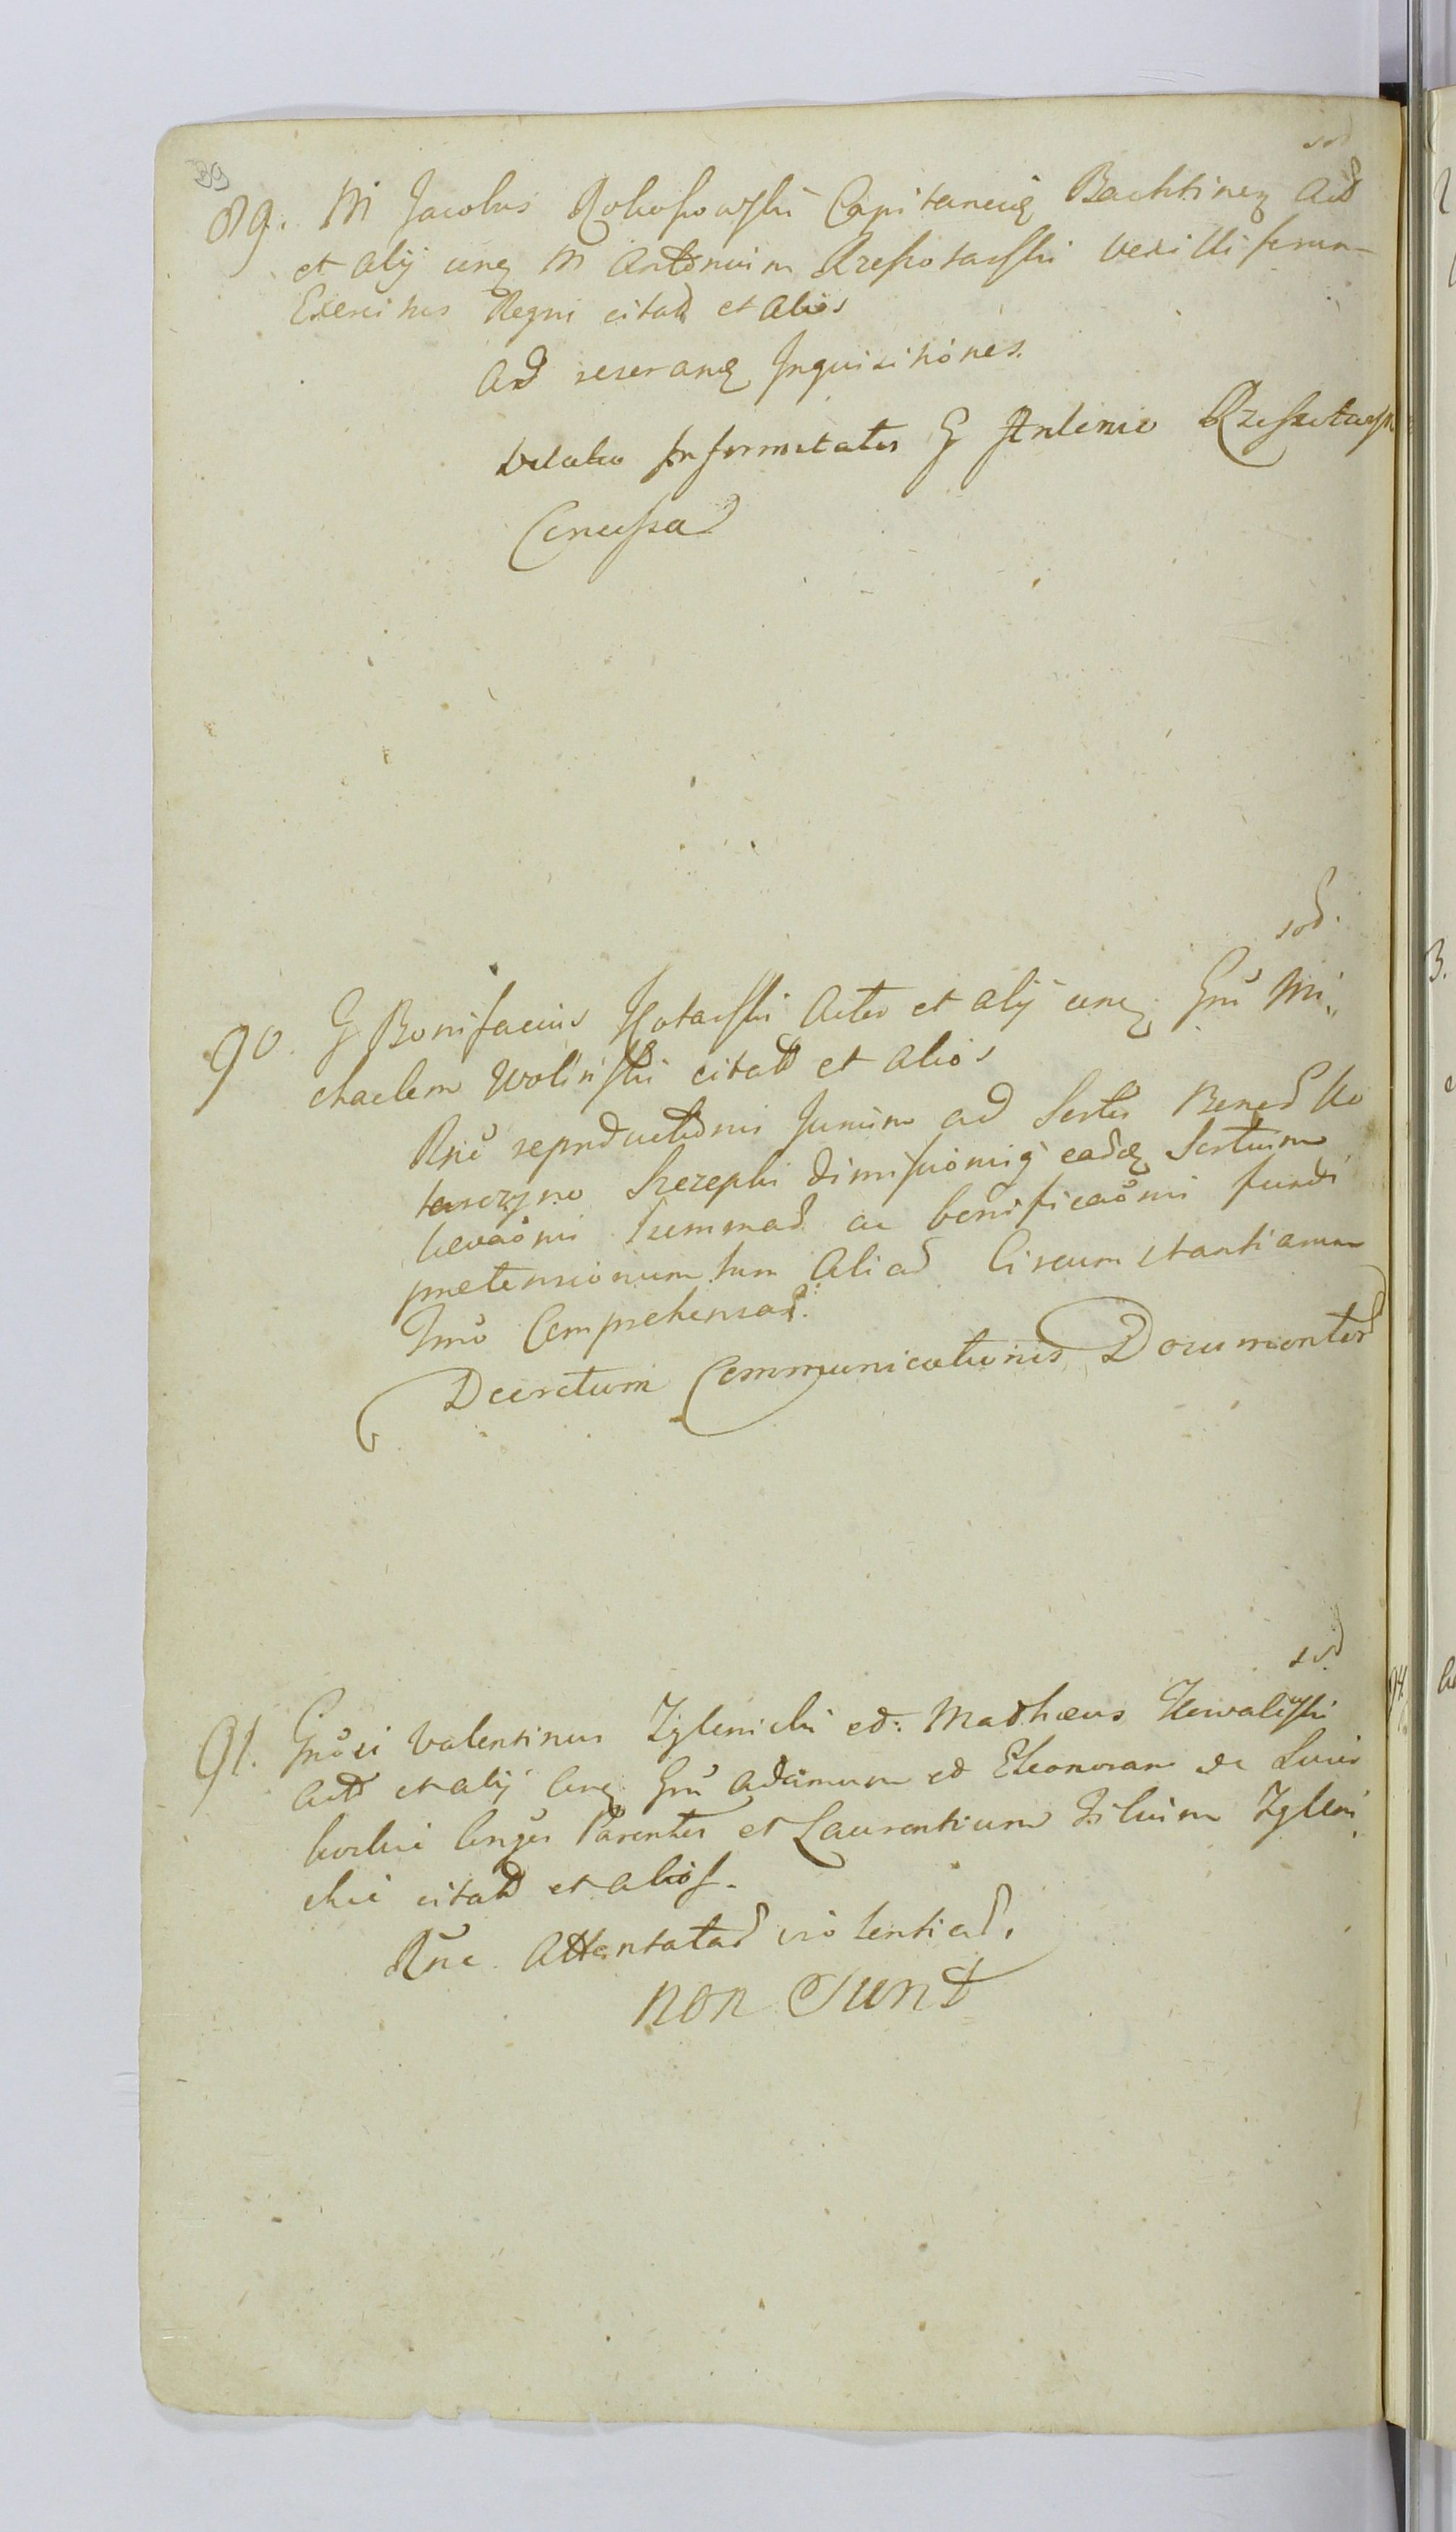 89
sod
89. M Jacobus Rokossowski Capitaneus Bachtinen Act
et alij conq M Antonium Rzeszotarski vexilliferum
Exercitus Regni citat et alios
Ad reserang Inquisitiones.
Dilatio Infirmitatis G Antonio Rzeszotarsk
Concessa
sod.
90. G Bonifacius Kotarski Actor et alij conq Gnu Mi„
chaelem Wolinski citatt et alios
Rne reproductionis Jurium ad Sortes
dimissionisq eadq Sortium
Summar ac bonificaoni fundi
pretensionum tum Aliar Circumstantiarum
Imo Comprehensar.
Decretum Communicationis Documentor
sod
91. Gnosi Valentinus Zglenicki et: Mathæus Kowalewski
Actt et alij conq Gnu Adamum et Eleonoram de
Conges Parentes et Laurentium Filium Zgleni
chii citatt et alios.
Rne Attentatar violentiar.
non Sunt